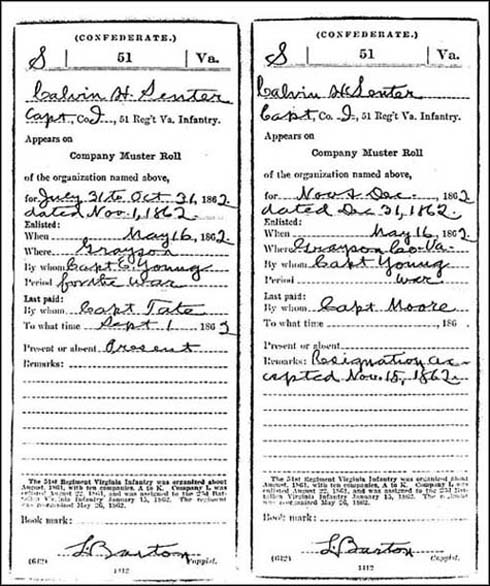 (CONFEDERATE.)
S | 51 | Va.
Calvin H. Senter
Capt, Co. I, 51 Reg't Va. Infantry.
Appears on
Company Muster Roll
of the organization named above,
for July 31 to Oct 31, 1862.
dated Nov. 1, 1862.
Enlisted:
When May 16, 1862.
Where Grayson
By whom Capt C. Young
Period for the War
Last paid:
By whom Capt Tate
To what time Sept 1 1862
Present or absent Present
Remarks:
The 51st Regiment Virginia Infantry was organized about
August, 1861, with ten companies, A to K. Company L was
enlisted August 22, 1861, and was assigned to the 23d Bat-
talion Virginia Infantry January 15, 1862. The regiment
was reorganized May 26, 1862.
Book mark:
L. Barton
(642) Copyist.
1412
(CONFEDERATE.)
S | 51 | Va.
Calvin H. Senter
Capt, Co. I, 51 Reg't Va. Infantry.
Appears on
Company Muster Roll
of the organization named above,
for Nov & Dec. 1862.
dated Dec 31, 1862.
Enlisted:
When May 16, 1862.
Where Grayson Co. Va.
By whom Capt Young
Period War
Last paid:
By whom Capt Moore
To what time , 186 .
Present or absent
Remarks: Resignation ac-
cepted Nov. 15, 1862.
The 51st Regiment Virginia Infantry was organized about
August, 1861, with ten companies, A to K. Company L was
enlisted August 22, 1861, and was assigned to the 23d Bat-
talion Virginia Infantry January 15, 1862. The regiment
was reorganized May 26, 1862.
Book mark:
L. Barton
(642) Copyist.
1412